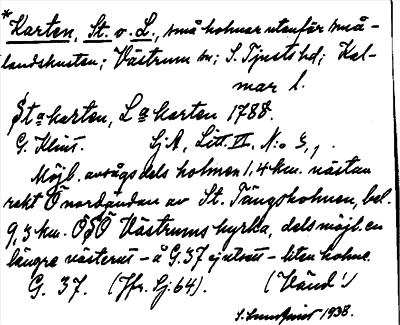 *Karten, St. o. L., små holmar utanför små-
landskusten; Västrum sn; S. Tjusts hd; Kal-
mar l.
Sta karten, La karten 1788.
G. Klint. SjA, Litt. II, N:o 3,,.
Möjl. avsågs dels holmen 1,4 km. nästan
rakt Ö nordändan av St. Tångsholmen, bel.
9,3 km. ÖSÖ Västrums kyrka, dels möjl. en
längre västerut – å G. 37 ej utsatt – liten holme.
G. 37. (Jfr. Sj. 64). (Vänd!)
1938.